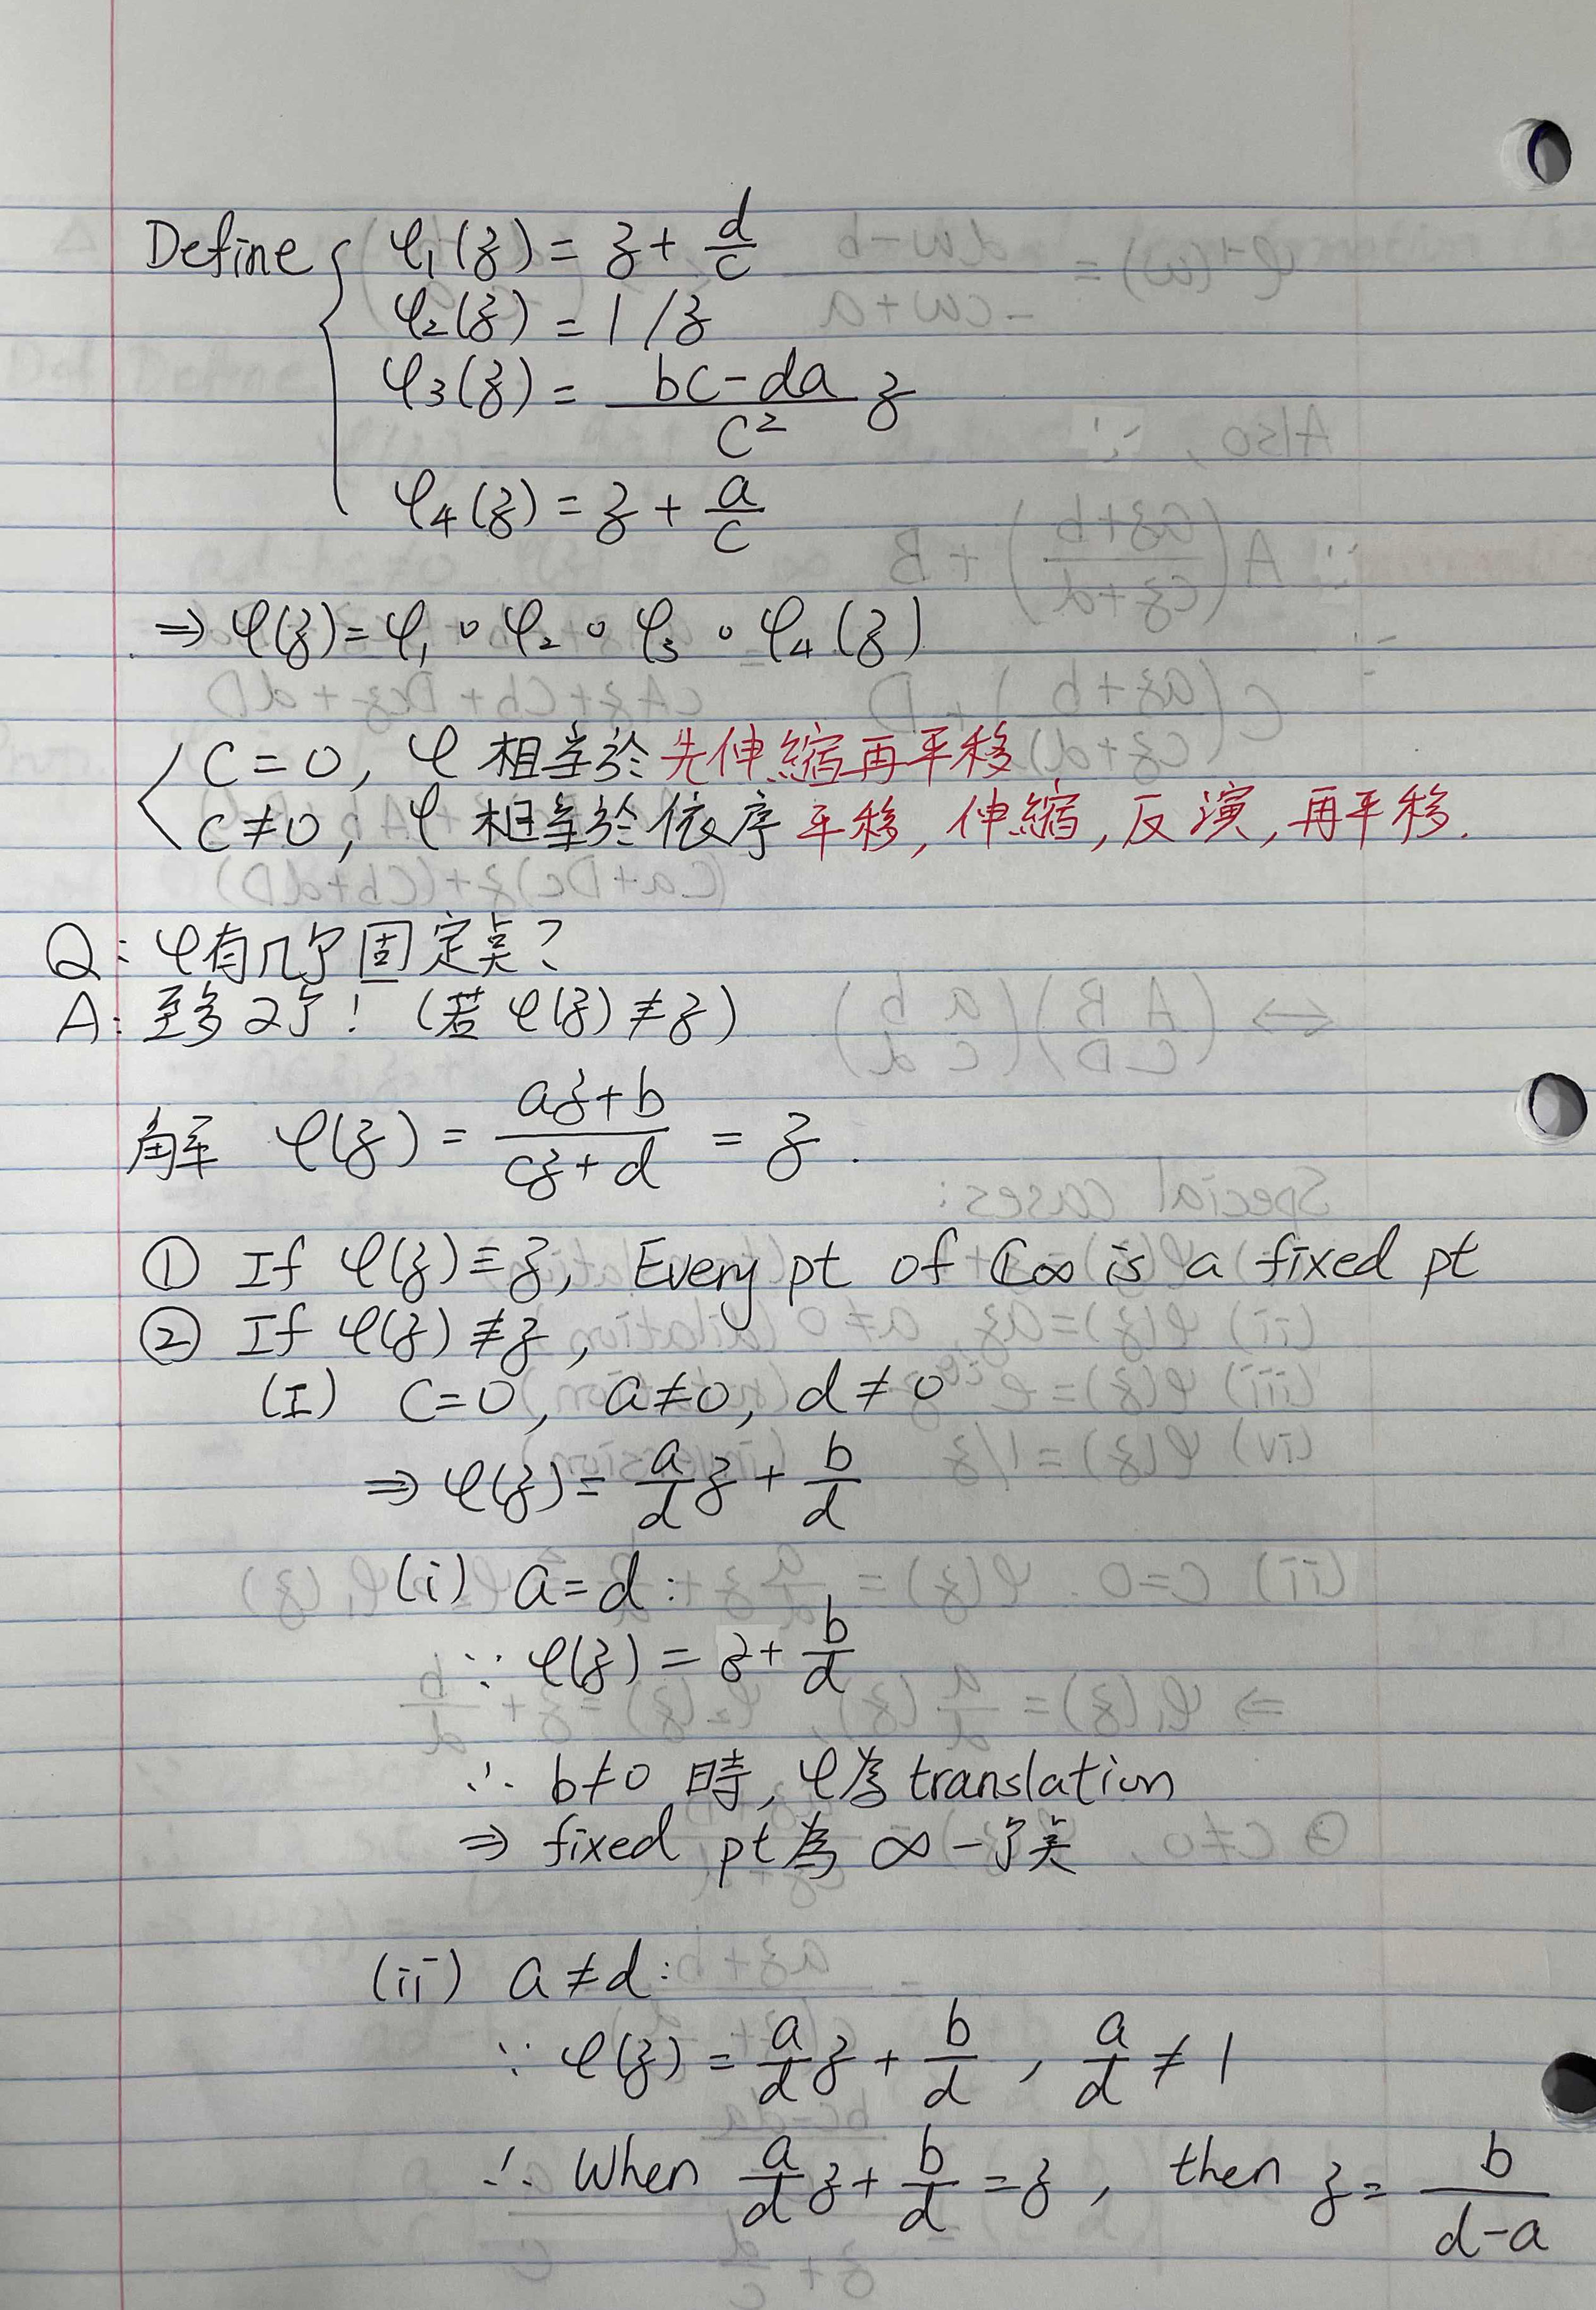 Define { φ₁(z) = z + d/c
φ₂(z) = 1/z
φ₃(z) = (bc-da)/c² z
φ₄(z) = z + a/c
⇒ φ(z) = φ₁ ∘ φ₂ ∘ φ₃ ∘ φ₄(z)
c=0, φ 相当於先伸縮再平移
c≠0, φ 相当於依序平移, 伸縮, 反演, 再平移.
Q: φ有几个固定点?
A: 至多2个! (若 φ(z) ≢ z)
解 φ(z) = (az+b)/(cz+d) = z.
① If φ(z) ≡ z, Every pt of ℂ∞ is a fixed pt
② If φ(z) ≢ z,
(I) c=0, a≠0, d≠0
⇒ φ(z) = a/d z + b/d
(i) a=d:
∵ φ(z) = z + b/d
∴ b≠0 時, φ为 translation
⇒ fixed pt為 ∞ 一个点
(ii) a≠d:
∵ φ(z) = a/d z + b/d, a/d ≠ 1
∴ When a/d z + b/d = z, then z = b/(d-a)